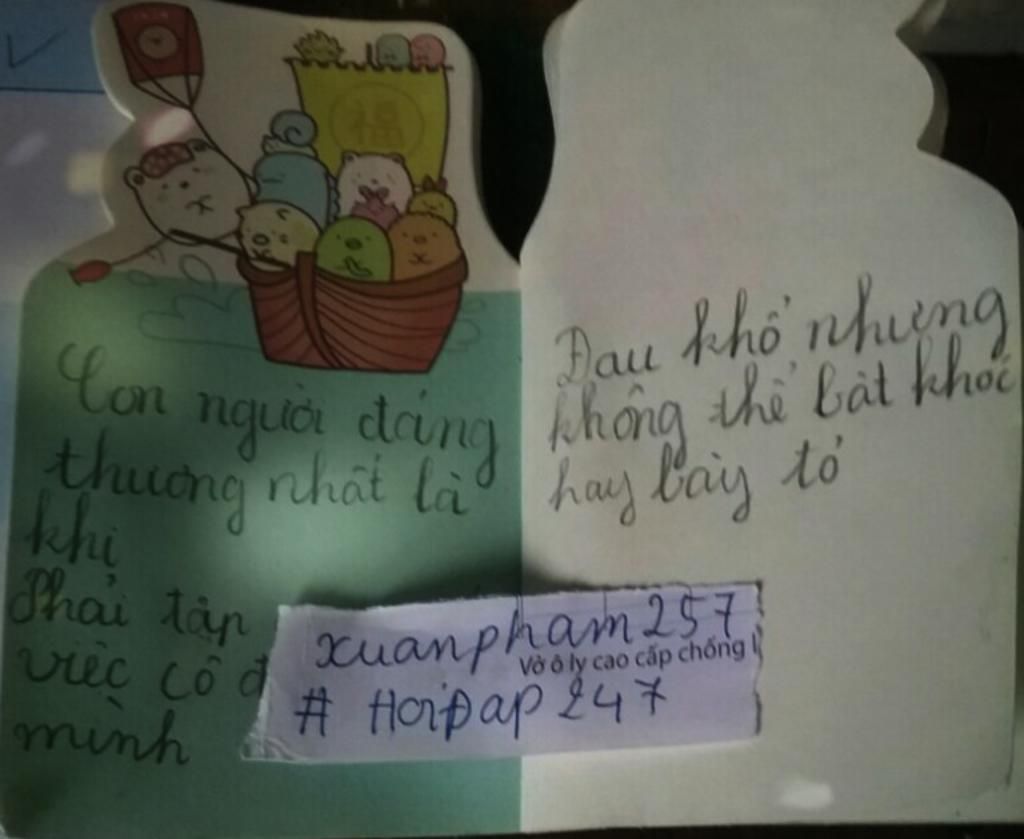 福
Con người đáng
thương nhất là
khi
Phải tập
việc cô đ
mình
Đau khổ nhưng
không thể bật khóc
hay bày tỏ
xuanpham257
Vở ô ly cao cấp chống l
# HoiĐap247